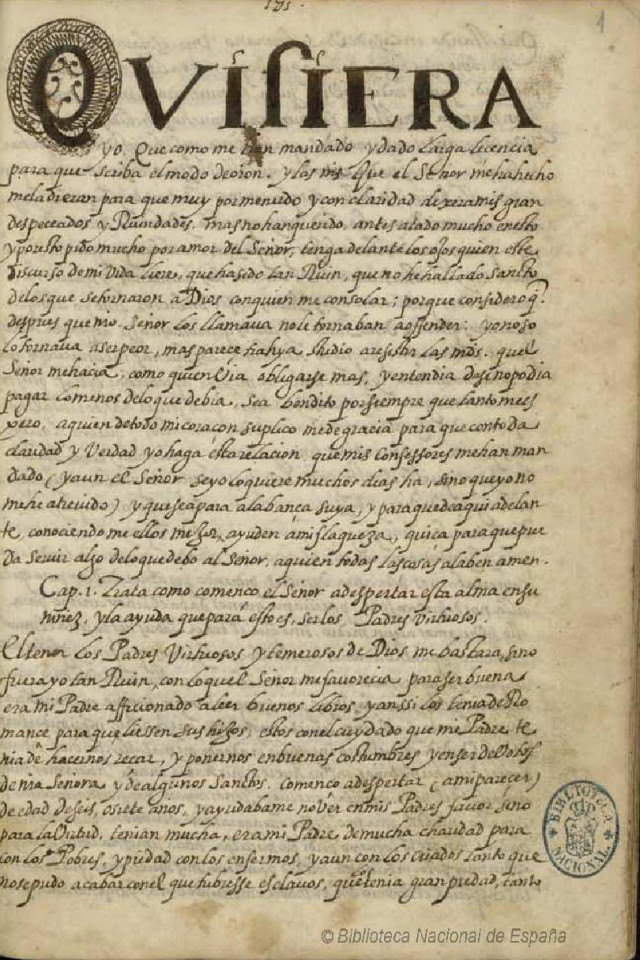 151.
1
QVISIERA
yo, Que como me han mandado y dado larga licencia
para que scriba el modo de oron. y las mds. Que el Señor me ha hecho
me la dieran para que muy por menudo y con claridad dixera mis gran
des peccados y Ruindades. mas no han querido, antes atado mucho en esto
y por esto pido mucho por amor del Señor, tenga delante los ojos quien este
discurso de mi vida liere, que ha sido tan Ruin, que no he hallado Sancto
de los que se tornaron a Dios con quien me consolar; porque considero q̃.
despues que nro. Señor los llamava no le tornaban a offender: yo no so
lo tornava a ser peor, mas parece trahya studio a resistir las mds. quel
Señor me hacia, como quien via obligarse mas, y entendia de si no podia
pagar lo menos de lo que debia. Sea bendito por siempre que tanto me es
pero, a quien de todo mi coraçon suplico me de gracia para que con toda
claridad y Verdad yo haga esta relacion que mis Confessores me han man
dado (y aun el Señor se yo lo quiere muchos dias ha, sino que yo no
me he atrevido) y que sea para alabança suya, y para que de aqui adelan
te, conociendo me ellos mejor, ayuden a mi flaqueza, quiça para que pue
da Servir algo de lo que debo al Señor, a quien todas las cosas alaben amen.
Cap. 1. Trata como començo el Señor a despertar esta alma en su
niñez, y la ayuda que para esto es, ser los Padres virtuosos.
El tener los Padres Virtuosos y temerosos de Dios me bastara, sino
fuera yo tan Ruin, con lo quel Señor me favorecia para ser buena
era mi Padre afficionado a leer buenos libros, y anssi los tenia de Ro
mance para que liessen sus hijos, estos con el cuydado que mi Padre te
nia de hacernos reçar, y ponernos en buenas costumbres y en ser devotos
de nra Señora y de algunos Sanctos. Començo a despertar (a mi parecer)
de edad de seis, o siete años, y ayudabame no ver en mis Padres favor sino
para la virtud, tenian mucha, era mi Padre de mucha charidad para
con los Pobres, y piedad con los enfermos, y aun con los criados tanto que
no se pudo acabar con el que tubiesse esclavos, que les tenia gran piedad, tanto
BIBLIOTECA NACIONAL
© Biblioteca Nacional de España